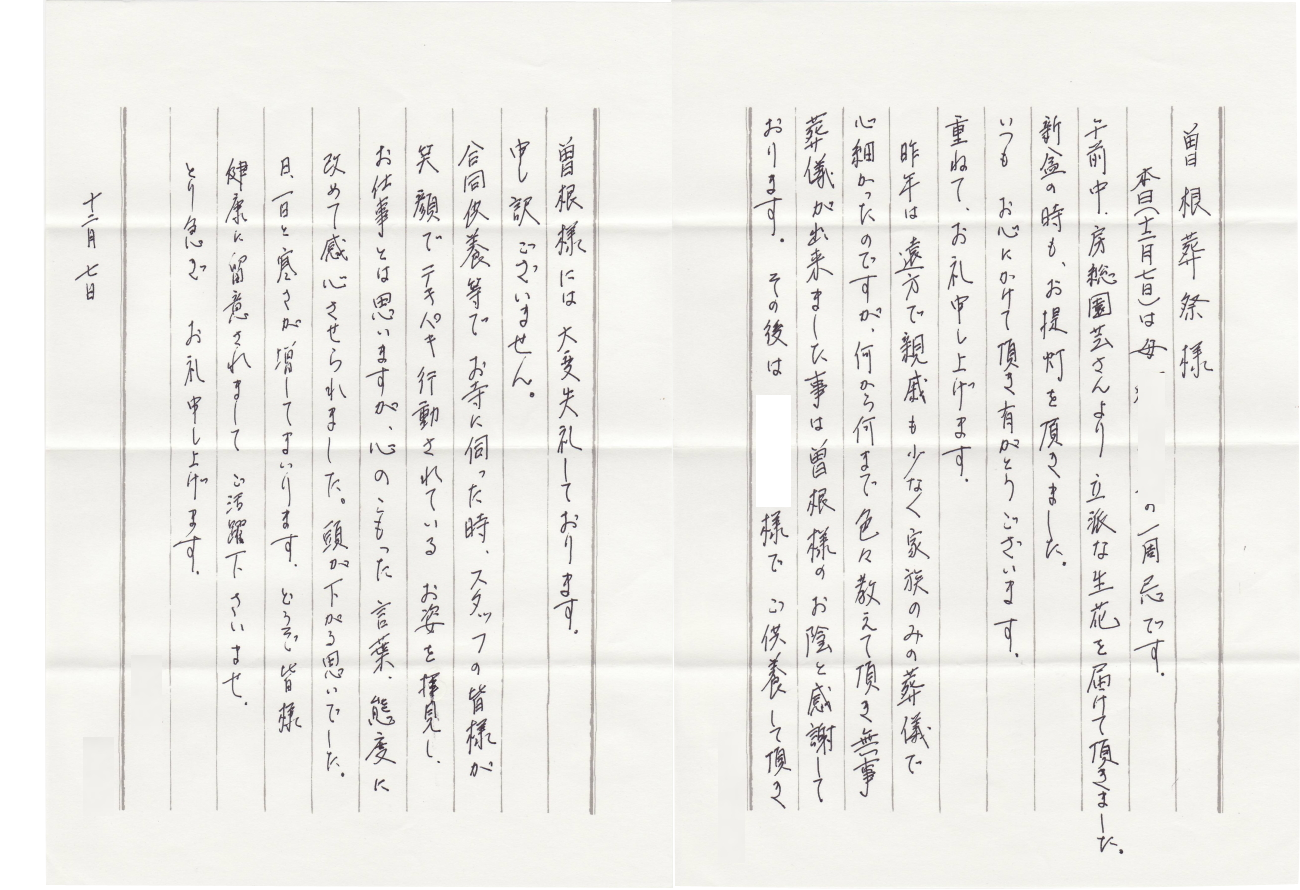 曽根葬祭様
本日(十二月七日)は母、 の一周忌です。
午前中、房総園芸さんより立派な生花を届けて頂きました。
新盆の時も、お提灯を頂きました。
いつもお心にかけて頂き有がとうございます。
重ねて、お礼申し上げます。
昨年は遠方で親戚も少なく家族のみの葬儀で
心細かったのですが、何から何まで色々教えて頂き無事
葬儀が出来ました事は曽根様のお陰と感謝して
おります。その後は 様でご供養して頂き
曽根様には大変失礼しております。
申し訳ございません。
合同供養等でお寺に伺った時、スタッフの皆様が
笑顔でテキパキ行動されているお姿を拝見し、
お仕事とは思いますが、心のこもった言葉、態度に
改めて感心させられました。頭が下がる思いでした。
日、一日と寒さが増してまいります。どうぞ皆様
健康に留意されましてご活躍下さいませ。
とり急ぎ お礼申し上げます。
十二月七日